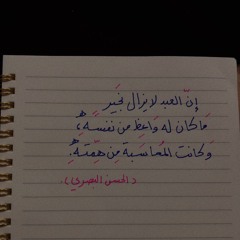 إنّ العبد لا يزال بخير
ما كان له واعظ من نفسه،
وكانت المحاسبة من همّته.
(الحسن البصري).